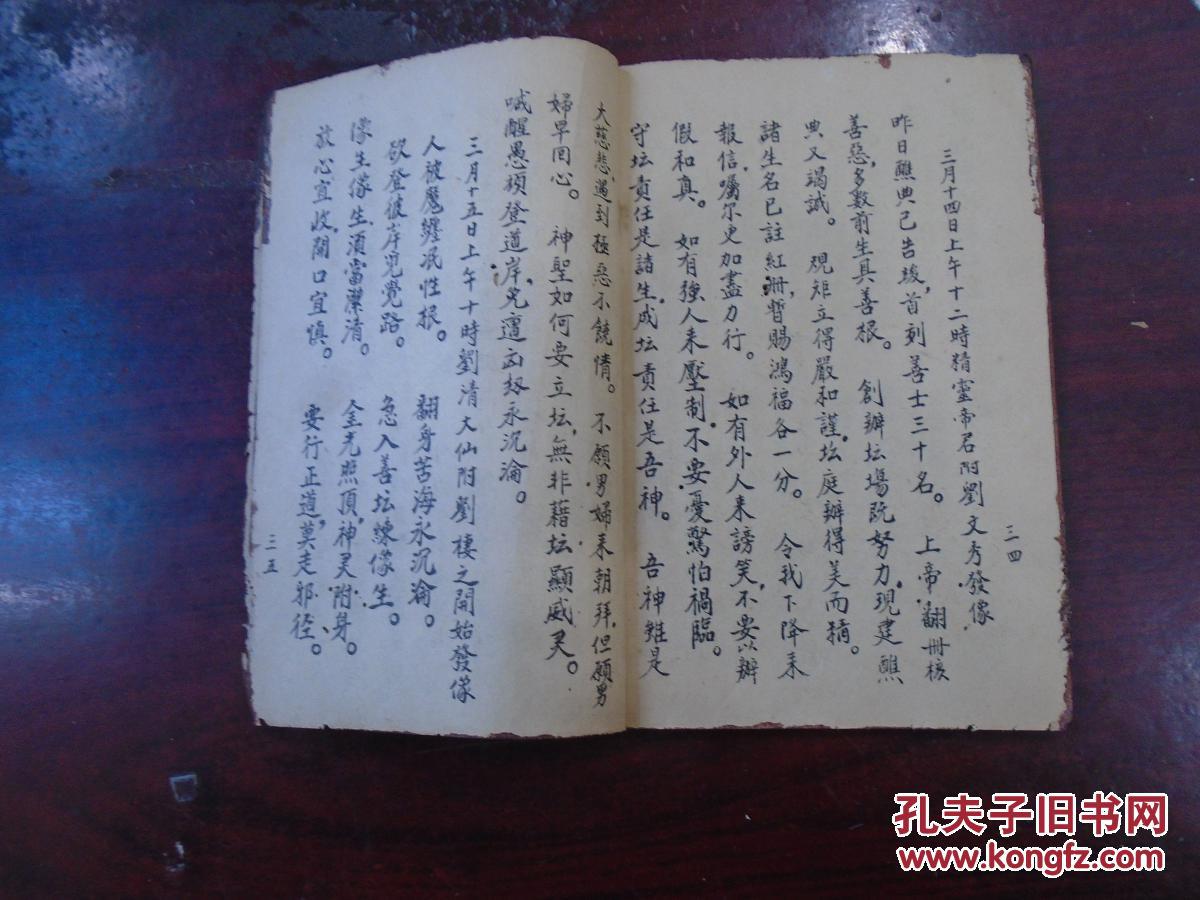 三月十四日上午十二時精靈帝君附劉文秀發像
昨日醮典已告竣，首列善士三十名。 上帝翻冊核
善惡，多數前生具善根。 創辦坛場既努力，現建醮
典又竭誠。 規矩立得嚴和謹，坛庭辦得美而精。
諸生名已註紅冊，暫賜鴻福各一分。 令我下降來
報信，囑尔更加盡力行。 如有外人來謗笑，不要以辦
假和真。 如有強人來壓制，不要憂驚怕禍臨。
守坛責任是諸生，成坛責任是吾神。 吾神雖是
三四
大慈悲，遇到極惡不饒情。 不願男婦來朝拜，但願男
婦早回心。 神聖如何要立坛，無非藉坛顯威灵。
喊醒愚頑登道岸，免遭劫永沉淪。
三月十五日上午十時劉清大仙附劉棲之開始發像
人被魔纏泯性根。 翻身苦海永沉淪。
欲登彼岸覓覺路。 急入善坛練像生。
像生像生須當潔清。 金光照頂，神灵附身。
放心宜收，開口宜慎。 要行正道，莫走邪徑。
三五
孔夫子旧书网
www.kongfz.com